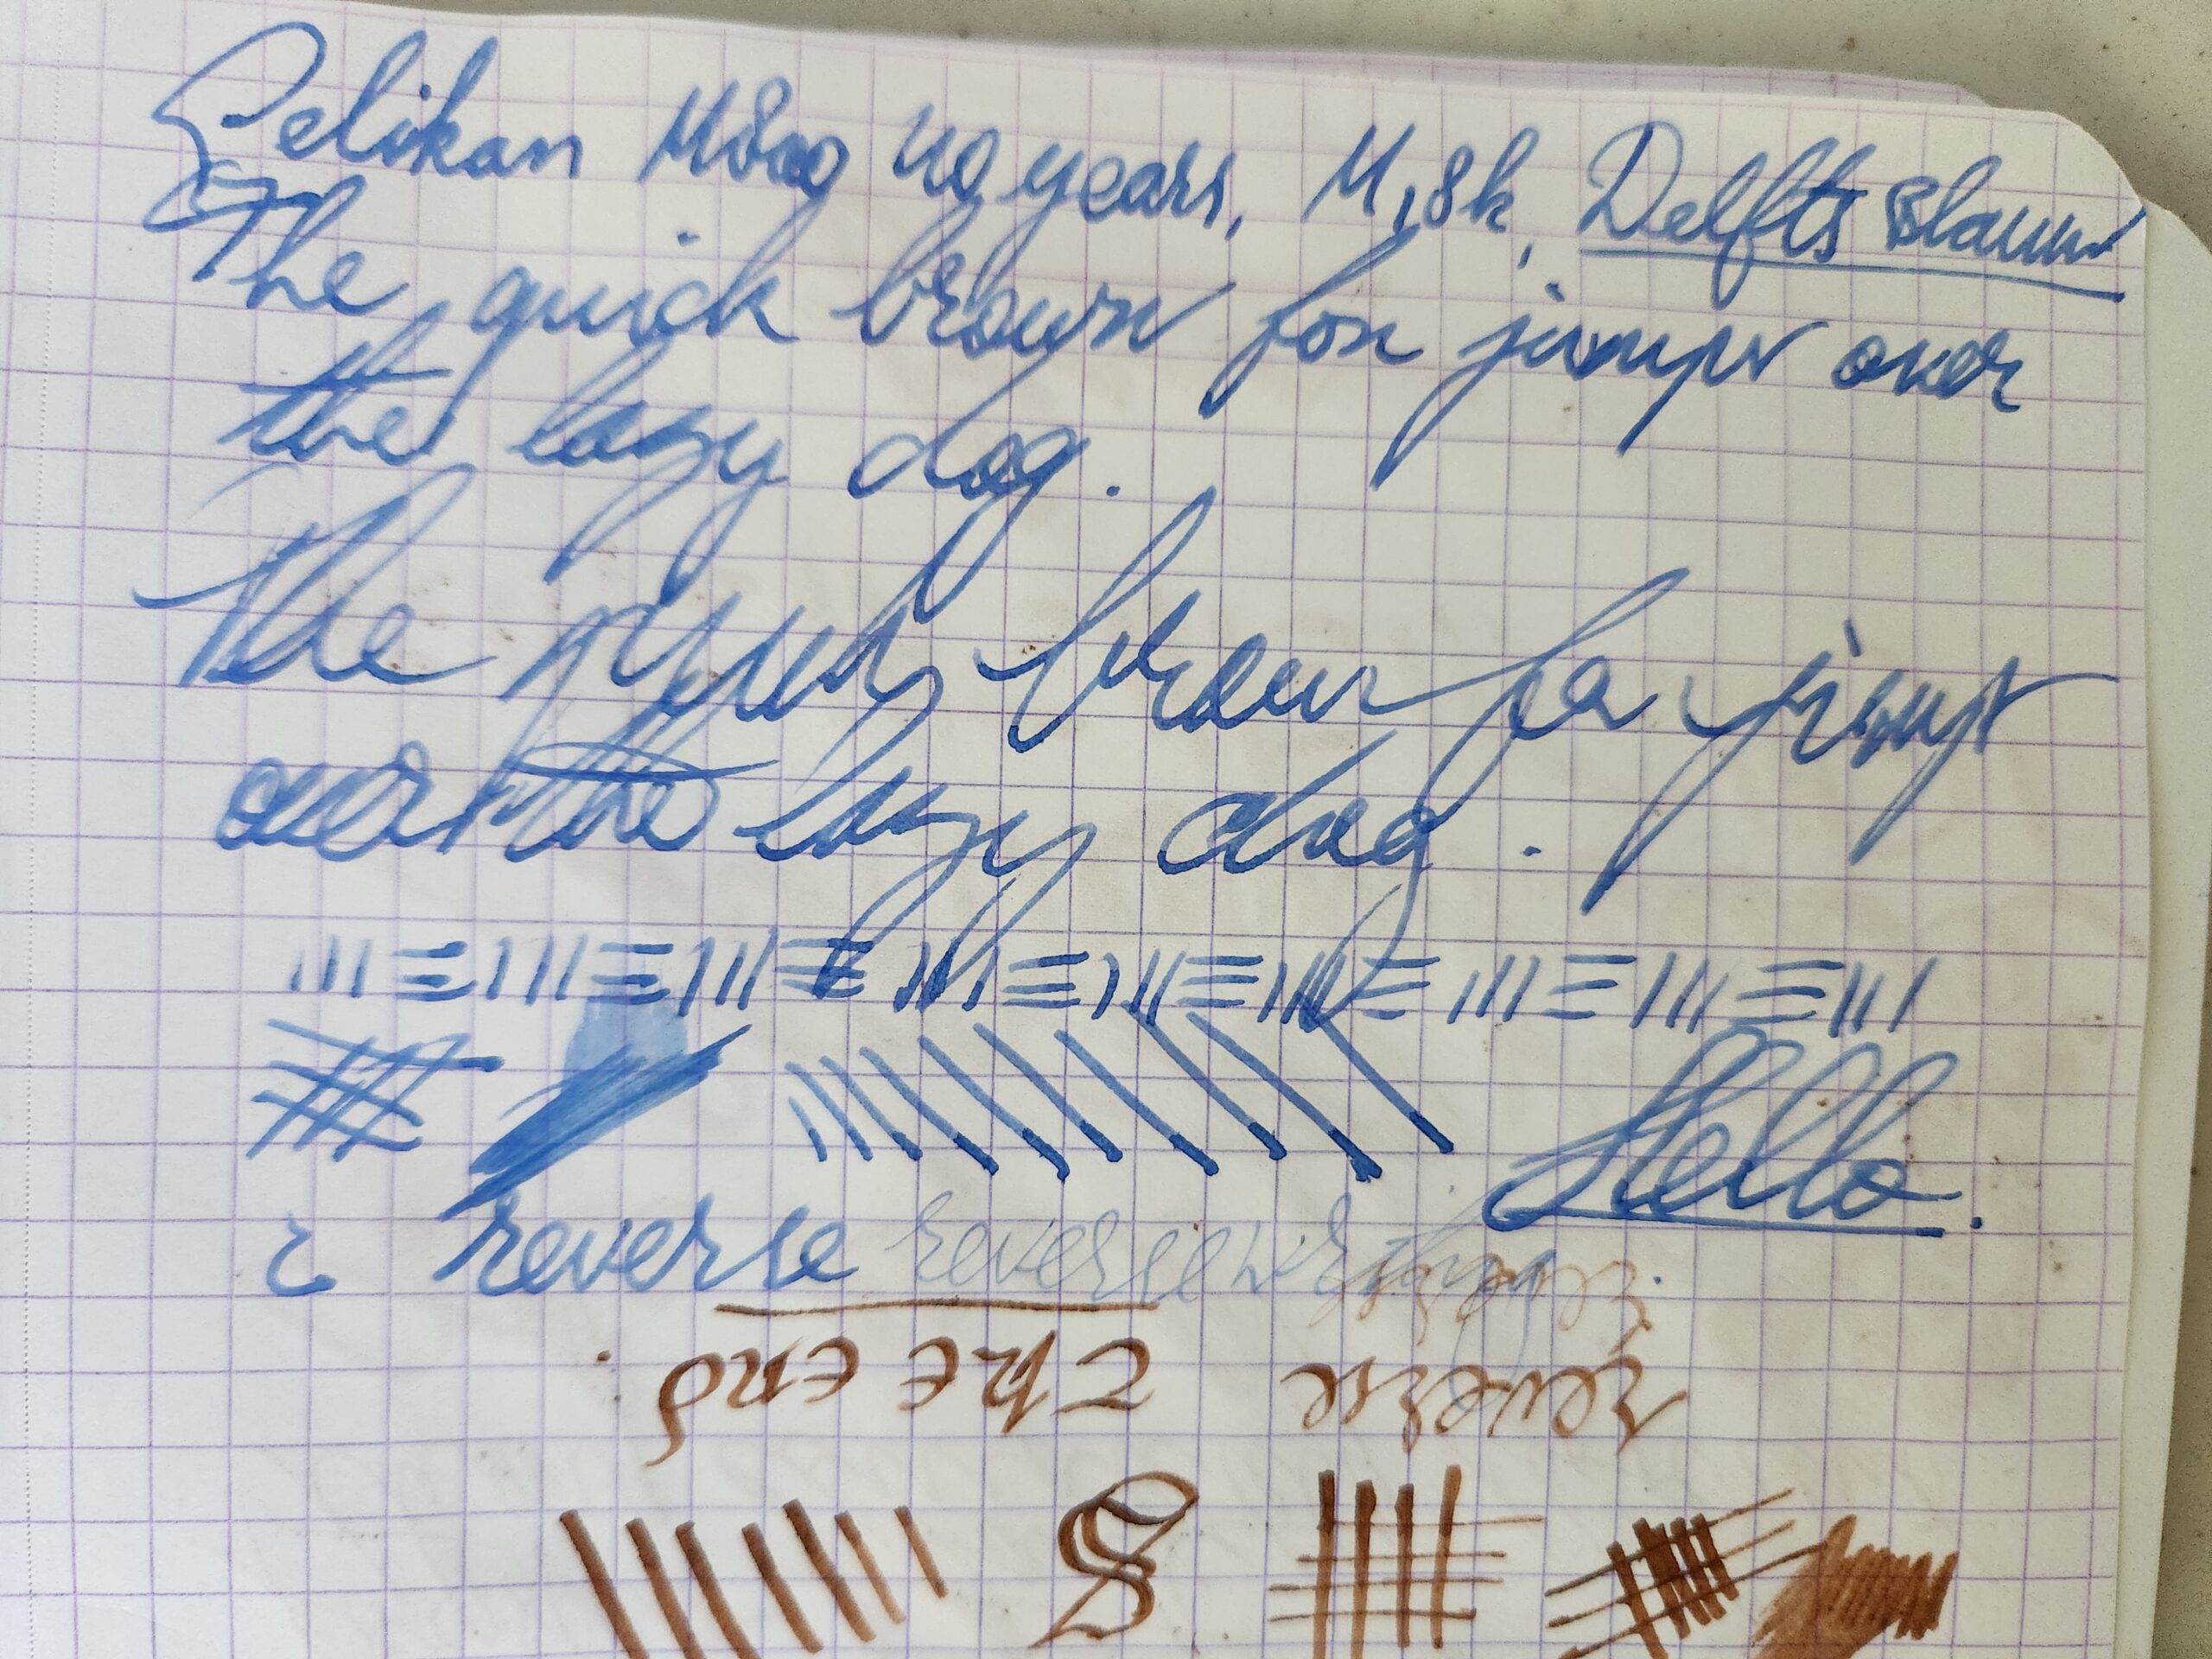 Pelikan M800 40 years, M, 18k, Delfts Blauw
The quick brown fox jumps over
the lazy dog.
The quick brown fox jumps
over the lazy dog.
Hello.
reverse reverse writing.
The end.
reverse